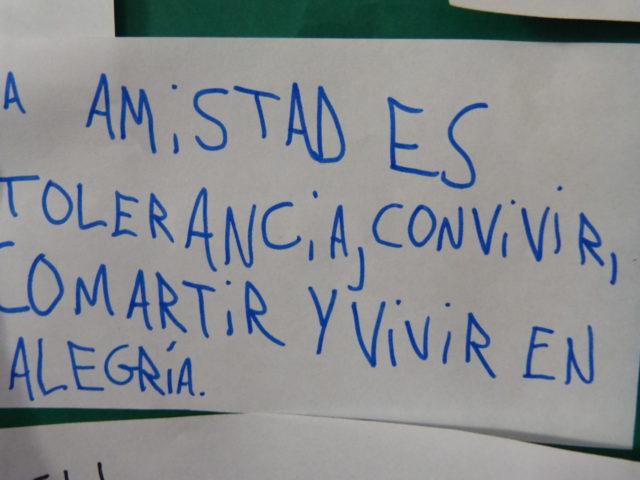 A AMiSTAD ES
TOLERANCiA, CONViViR,
COMARTiR Y ViViR EN
ALEGRíA.